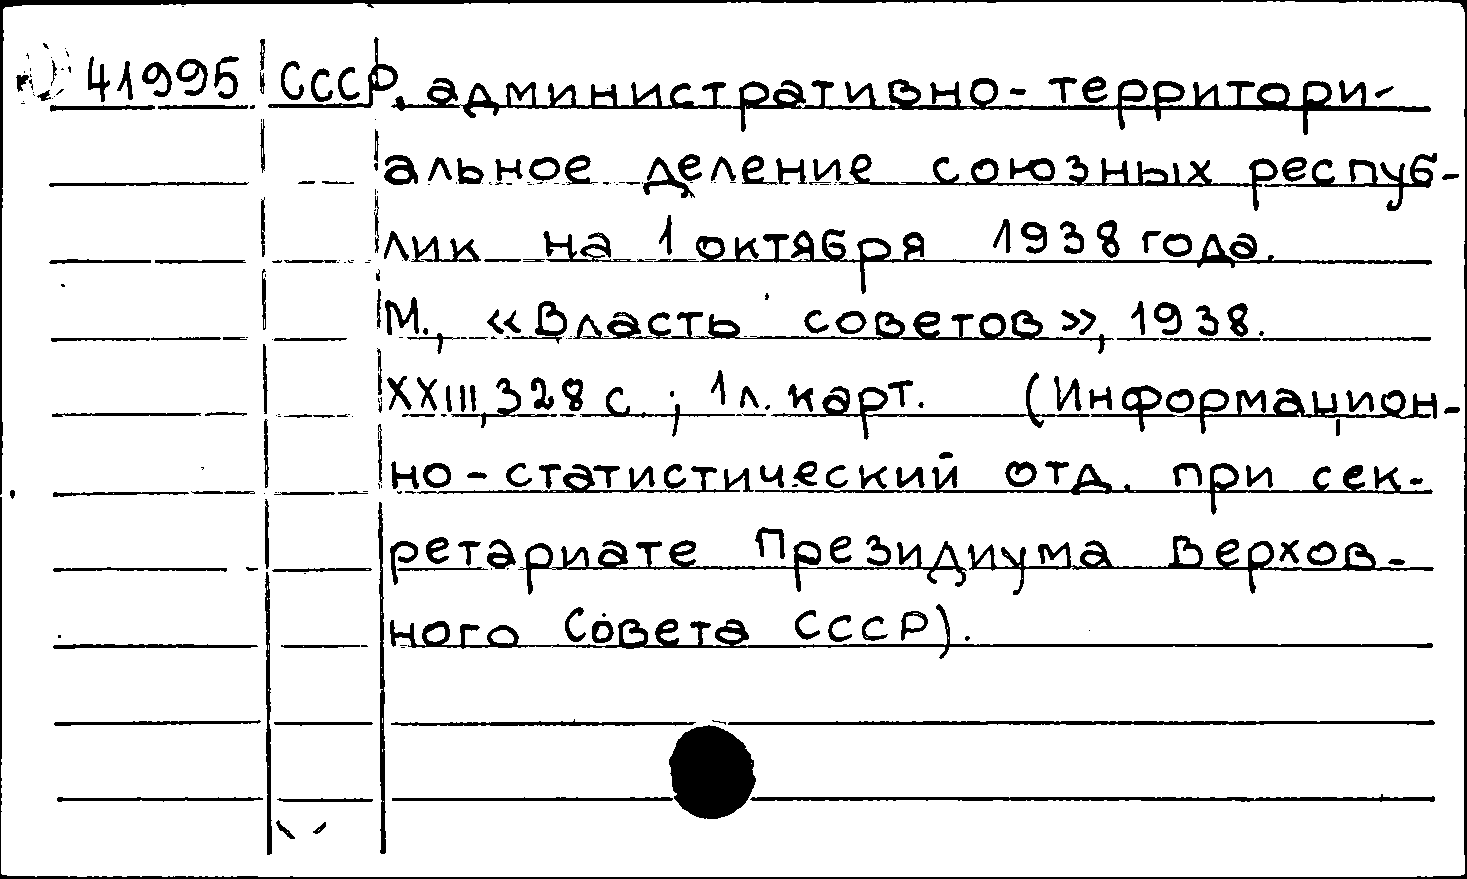 41995 СССР, административно-территори-
альное деление союзных респуб-
лик на 1 октября 1938 года.
М., «Власть советов», 1938.
XXIII, 328 с.; 1 л. карт. (Информацион-
но-статистический отд. при сек-
ретариате Президиума Верхов-
ного Совета СССР).